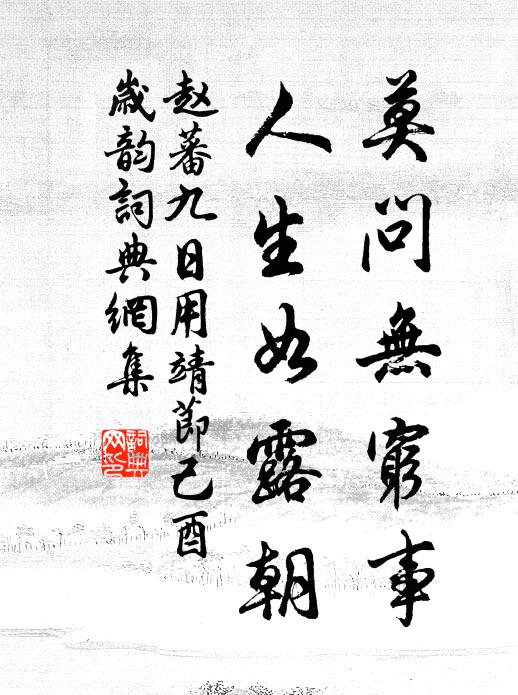 莫問無窮事
人生如露朝
赵蕃九日用靖節己酉
歲韵詞典網集
詞典
网印